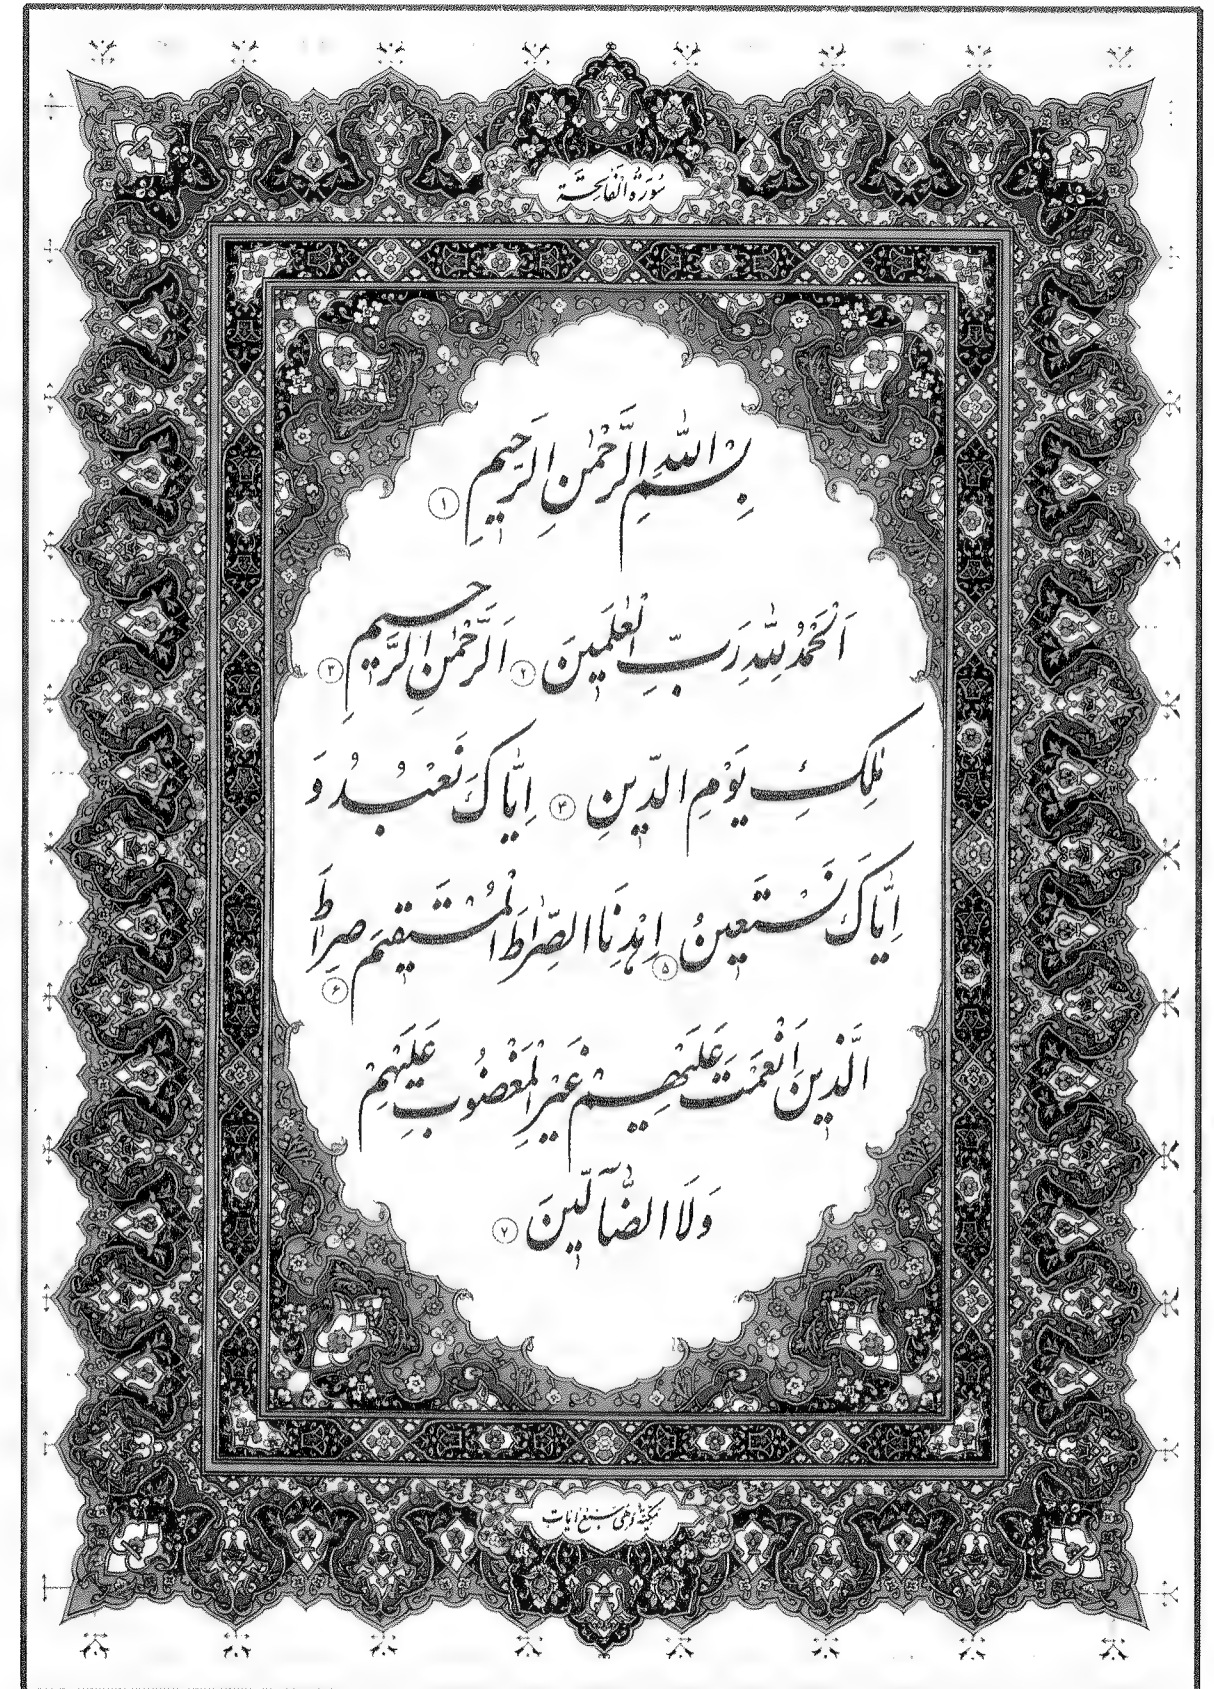 سُورَةُ الْفَاتِحَة
بِسْمِ اللّٰهِ الرَّحْمٰنِ الرَّحِيمِ ۱
اَلْحَمْدُ لِلّٰهِ رَبِّ الْعٰلَمِينَ ۲ اَلرَّحْمٰنِ الرَّحِيمِ ۳
مٰلِكِ يَوْمِ الدِّينِ ۴ اِيَّاكَ نَعْبُدُ وَ
اِيَّاكَ نَسْتَعِينُ ۵ اِهْدِنَا الصِّرٰطَ الْمُسْتَقِيمَ ۶ صِرٰطَ
الَّذِينَ اَنْعَمْتَ عَلَيْهِمْ غَيْرِ الْمَغْضُوبِ عَلَيْهِمْ
وَلَا الضَّآلِّينَ ۷
مَكِّيَّةٌ وَهِيَ سَبْعُ اٰيَات